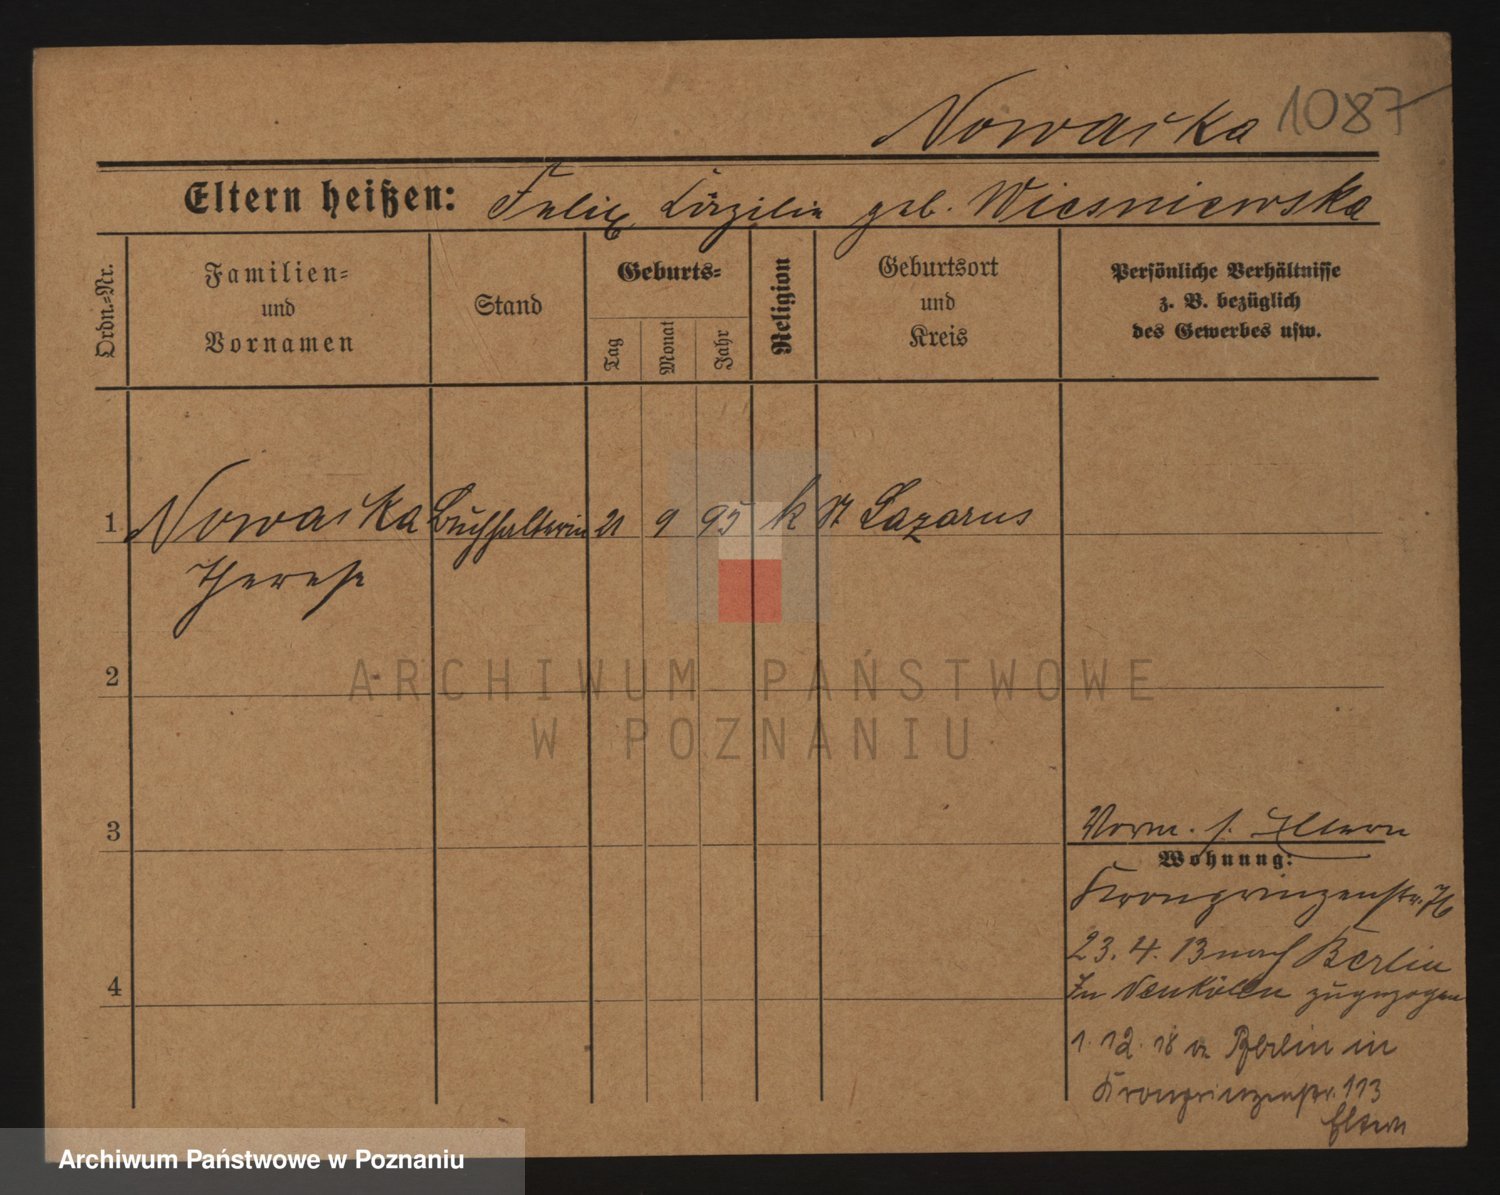 Nowacka 1087
Eltern heißen: Felix Cäzilie geb. Wiesniewska
Ordn.=Nr.
Familien=
und
Vornamen
Stand
Geburts=
Tag
Monat
Jahr
Religion
Geburtsort
und
Kreis
Persönliche Verhältnisse
z. B. bezüglich
des Gewerbes usw.
1 Nowacka Buchhalterin 21 9 95 k St Lazarus
Therese
2
ARCHIWUM PAŃSTWOWE
W POZNANIU
3
Vorm. s. Eltern
Wohnung:
Kronprinzenstr.
4
23. 4. 13 nach Berlin
In Neukölln zugezogen
1. 12. 18 v. Berlin in
Kronprinzenstr. 113
Eltern
Archiwum Państwowe w Poznaniu